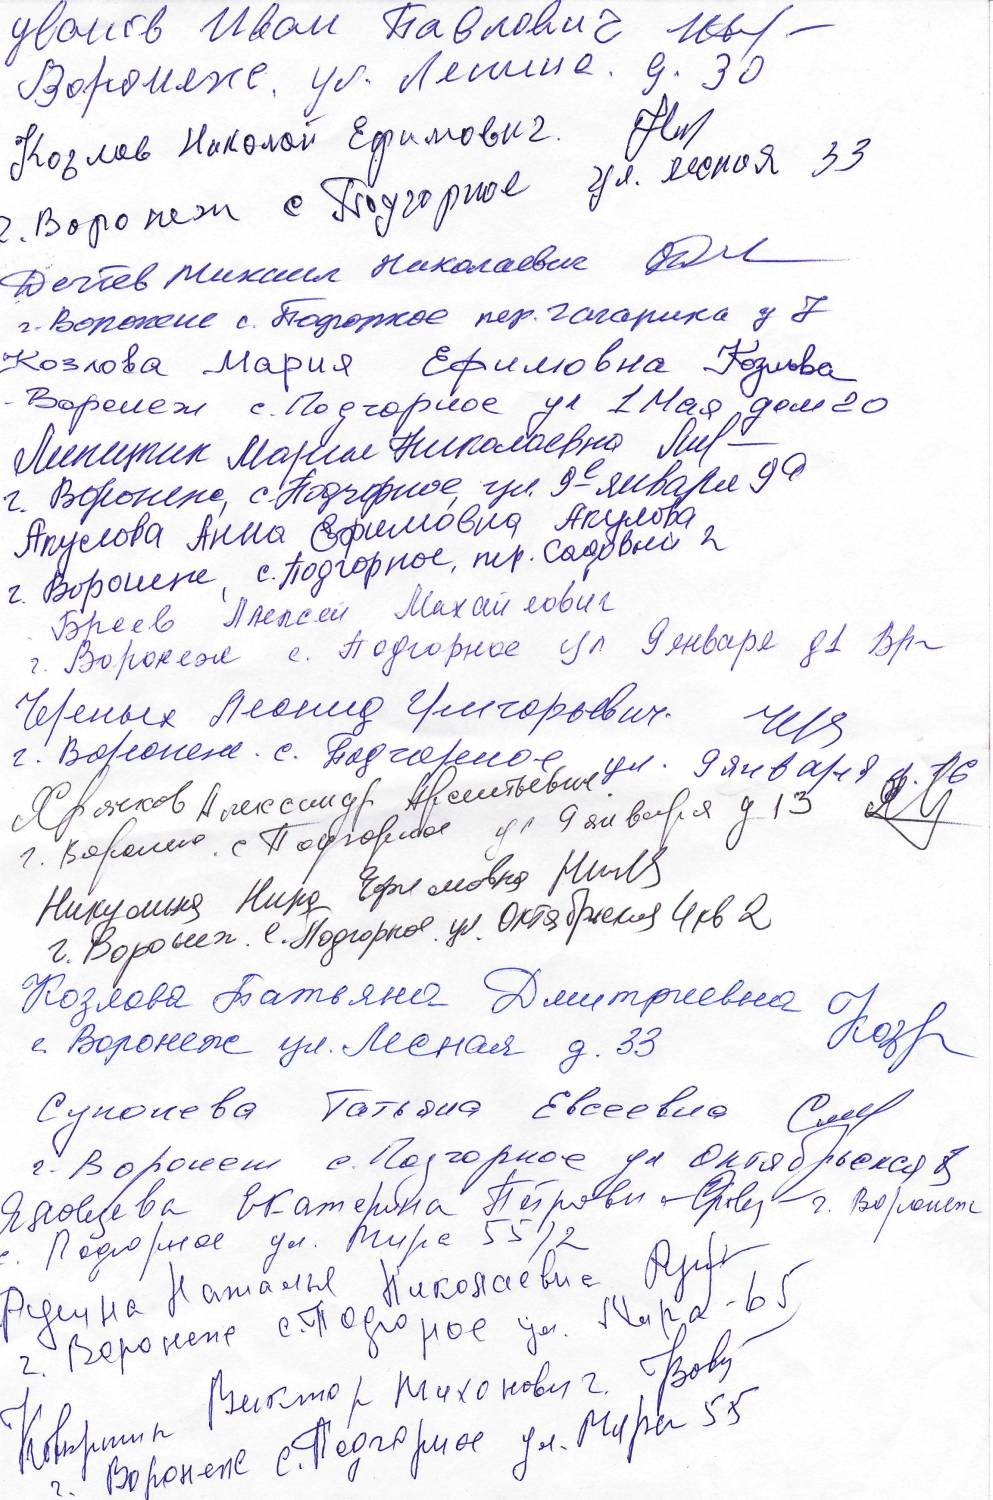 Иван Павлович
Воронеже, ул. Ленина. д. 30
Козлов Николай Ефимович.
г. Воронеж с Подгорное ул. Лесная 33
Дегтев Михаил Николаевич
г. Воронеже с. Подгорное пер. Гагарина д 7
Козлова Мария Ефимовна Козлова
Воронеж с. Подгорное ул 1 Мая дом 20
Мария Николаевна
г. Воронеж, с. Подгорное, ул. 9е января 9а
Акулова Анна Ефимовна Акулова
г. Воронеж, с. Подгорное, пер. Садовый 2
Бреев Алексей Михайлович
г. Воронеж с. Подгорное ул 9 января д1
Черных Леонид Григорьевич.
г. Воронеж. с. Подгорное ул. 9 января д. 16
Хрячков Александр
г. Воронеж. с Подгорное ул 9 января д 13
Никулина Нина Ефимовна
г. Воронеж. с. Подгорное. ул. Октябрьская 4 кв 2
Козлова Татьяна Дмитриевна
г. Воронеж ул. Лесная д. 33
Татьяна Евсеевна
г. Воронеж с. Подгорное ул Октябрьская
Яковцева Екатерина г. Воронеж
с. Подгорное ул. Мира 55/2
Наталья Николаевна
г. Воронеж с. Подгорное ул. Мира-65
Виктор
г. Воронеж с. Подгорное ул. Мира 55